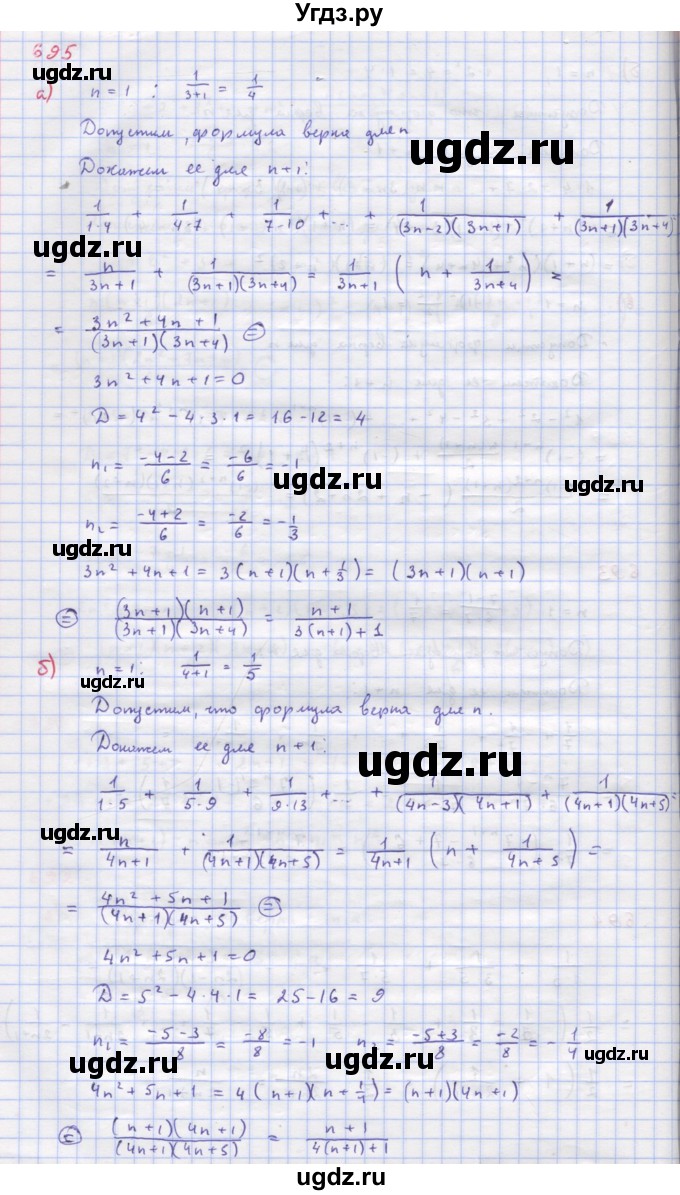 Угдз.ру
695
ugdz.ru
а) n = 1 : 1/(3+1) = 1/4
Допустим, формула верна для n
ugdz.ru
Докажем ее для n+1:
1/(1·4) + 1/(4·7) + 1/(7·10) + ... + 1/((3n-2)(3n+1)) + 1/((3n+1)(3n+4))
ugdz.ru
ugdz.ru
= n/(3n+1) + 1/((3n+1)(3n+4)) = 1/(3n+1) (n + 1/(3n+4)) =
= (3n² + 4n + 1)/((3n+1)(3n+4)) =
3n² + 4n + 1 = 0
ugdz.ru
D = 4² - 4·3·1 = 16 - 12 = 4
n₁ = (-4-2)/6 = -6/6 = -1
ugdz.ru
n₂ = (-4+2)/6 = -2/6 = -1/3
ugdz.ru
ugdz.ru
3n² + 4n + 1 = 3(n+1)(n+1/3) = (3n+1)(n+1)
= ((3n+1)(n+1))/((3n+1)(3n+4)) = (n+1)/(3(n+1)+1)
ugdz.ru
б) n = 1: 1/(4+1) = 1/5
ugdz.ru
Допустим, что формула верна для n.
Докажем ее для n+1:
ugdz.ru
1/(1·5) + 1/(5·9) + 1/(9·13) + ... + 1/((4n-3)(4n+1)) + 1/((4n+1)(4n+5)) =
ugdz.ru
= n/(4n+1) + 1/((4n+1)(4n+5)) = 1/(4n+1) (n + 1/(4n+5)) =
= (4n² + 5n + 1)/((4n+1)(4n+5)) =
ugdz.ru
4n² + 5n + 1 = 0
D = 5² - 4·4·1 = 25 - 16 = 9
n₁ = (-5-3)/8 = -8/8 = -1 n₂ = (-5+3)/8 = -2/8 = -1/4
ugdz.ru
ugdz.ru
ugdz.ru
4n² + 5n + 1 = 4(n+1)(n+1/4) = (n+1)(4n+1)
= ((n+1)(4n+1))/((4n+1)(4n+5)) = (n+1)/(4(n+1)+1)
ugdz.ru
ugdz.ru